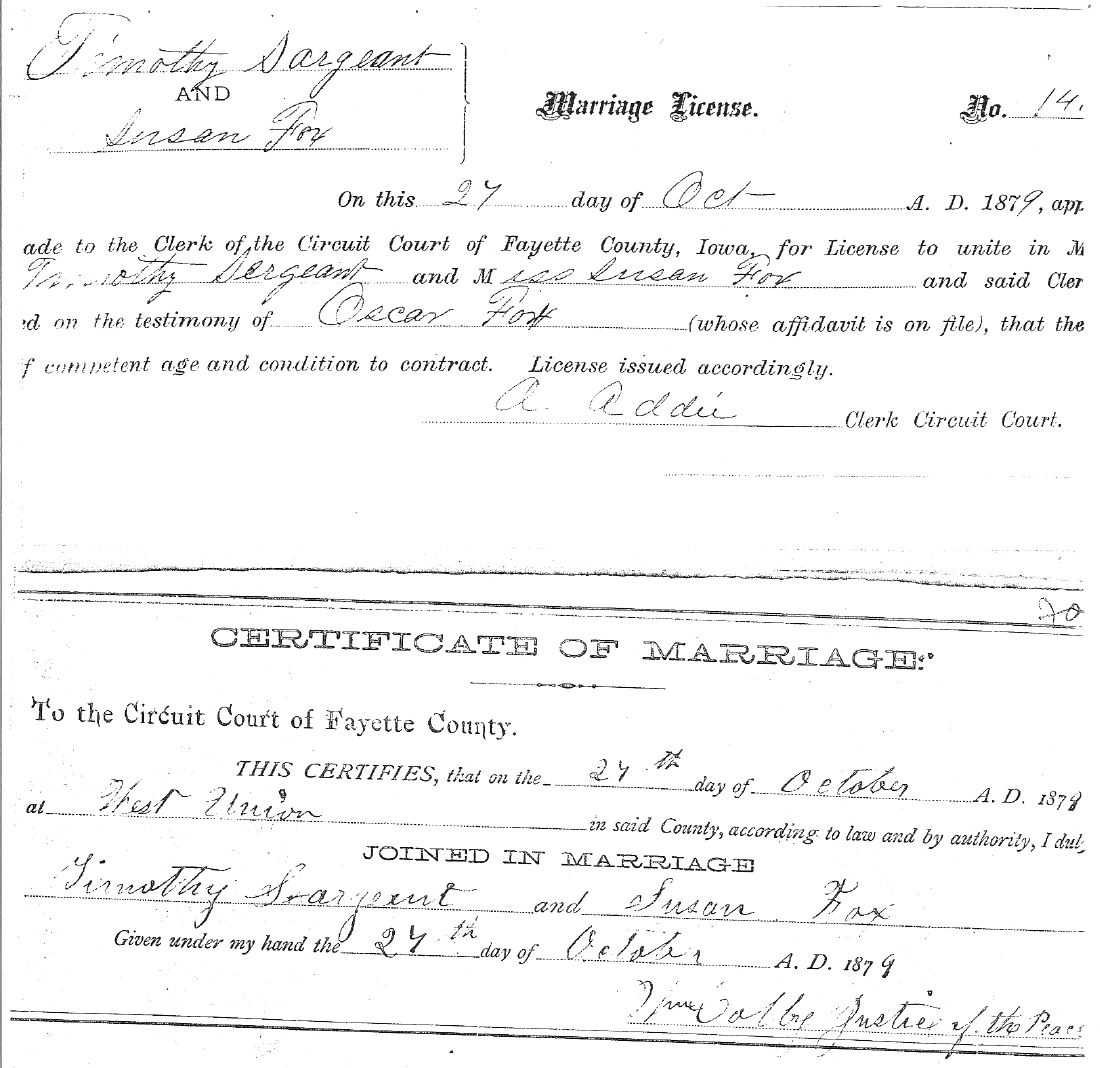 Timothy Sargeant
AND
Susan Fox
Marriage License. No. 14.
On this 27 day of Oct A. D. 1879, app
ade to the Clerk of the Circuit Court of Fayette County, Iowa, for License to unite in M
Timothy Sergeant and Miss Susan Fox and said Cler
ed on the testimony of Oscar Fox (whose affidavit is on file), that the
f competent age and condition to contract. License issued accordingly.
A. Addie Clerk Circuit Court.
20
CERTIFICATE OF MARRIAGE:
To the Circuit Court of Fayette County.
THIS CERTIFIES, that on the 27th day of October A. D. 1879
at West Union in said County, according to law and by authority, I duly
JOINED IN MARRIAGE
Timothy Sargeant and Susan Fox
Given under my hand the 27th day of October A. D. 1879
Wm Colby Justice of the Peace